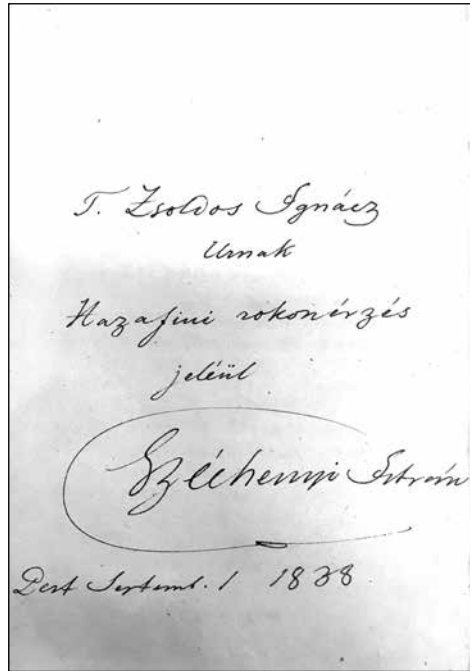 T. Zsoldos Ignácz
Urnak
Hazafiui rokonérzés
jeléül
Széchenyi István
Pest Septemb. 1 1838.